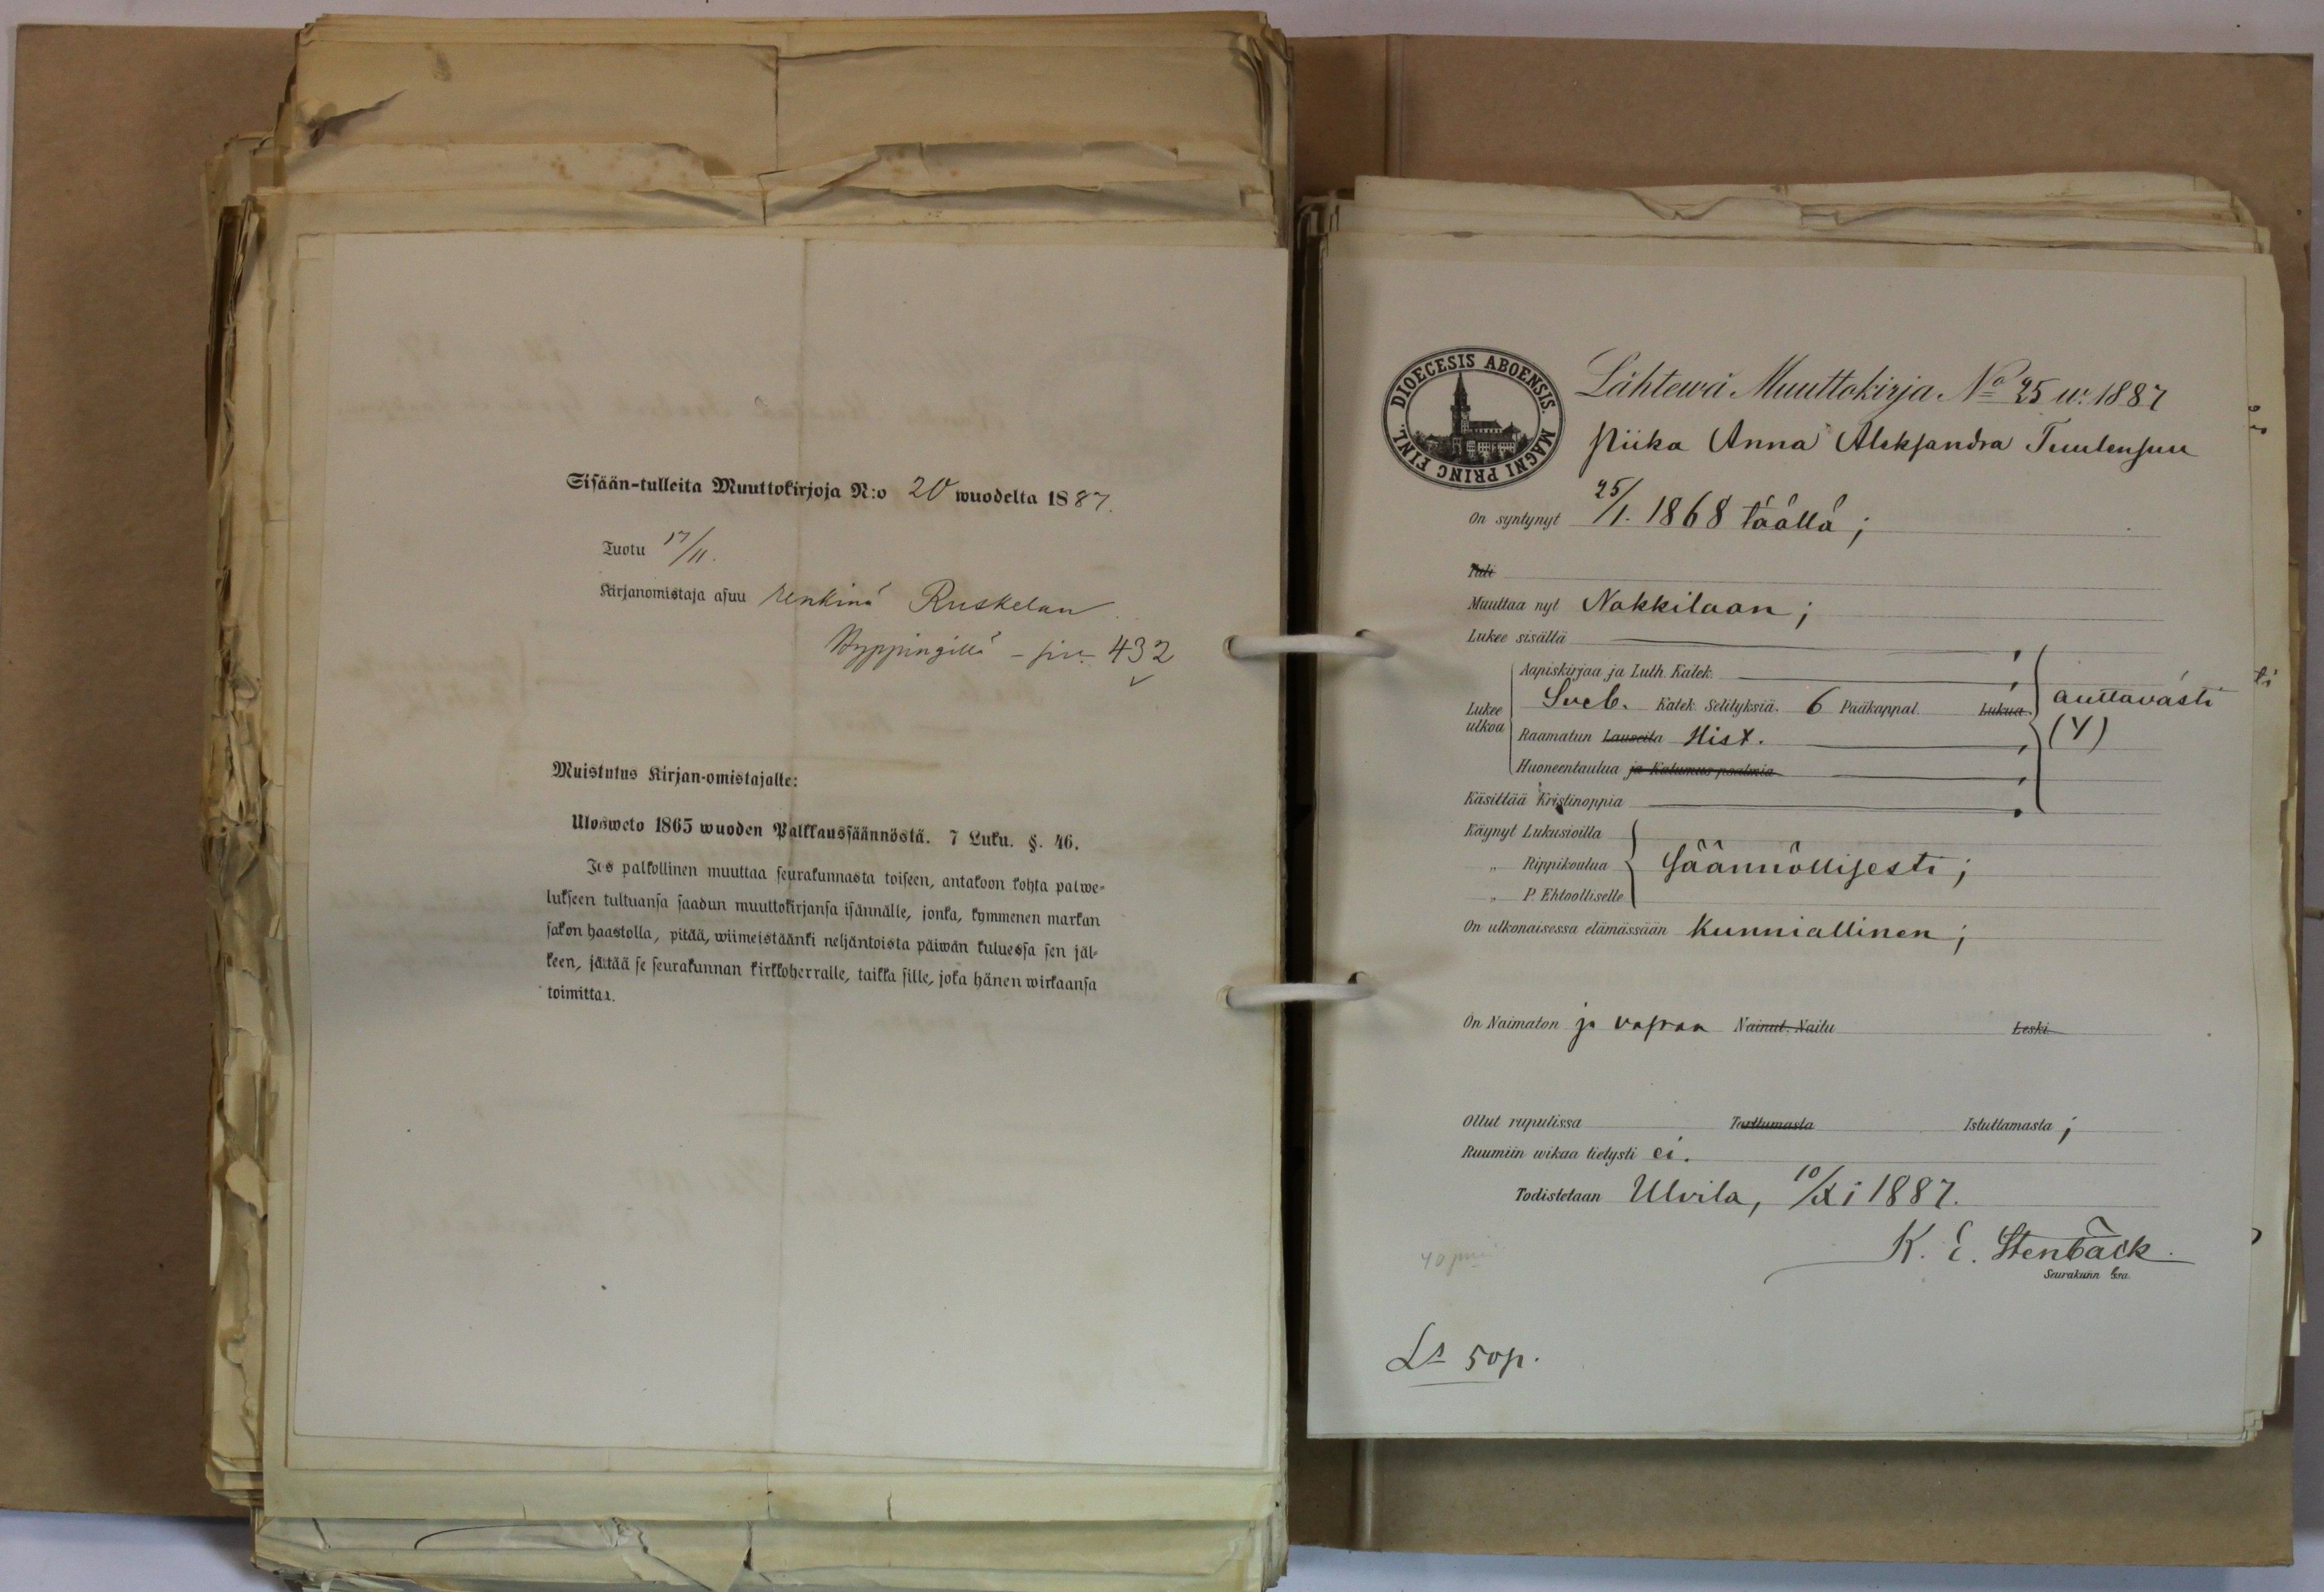 Sisään-tulleita Muuttokirjoja N:o 20 wuodelta 1887.
Tuotu 17/11.
Kirjanomistaja asuu renkinä Ruskelan
Hyppingillä - siv. 432
Muistutus Kirjan-omistajalle:
Ulosweto 1865 wuoden Palkkaussäännöstä. 7 Luku. §. 46.
Jos palkollinen muuttaa seurakunnasta toiseen, antakoon kohta palwe-
lukseen tultuansa saadun muuttokirjansa isännälle, jonka, kymmenen markan
sakon haastolla, pitää, wiimeistäänki neljäntoista päiwän kuluessa sen jäl-
keen, jättää se seurakunnan kirkkoherralle, taikka sille, joka hänen wirkaansa
toimittaa.
DIOECESIS ABOENSIS. MAGNI PRINC FINL.
Lähtewä Muuttokirja No 25 w. 1887
Piika Anna Aleksandra Tuulensuu
On syntynyt 25/1. 1868 täällä;
Tuli
Muuttaa nyt Nakkilaan;
Lukee sisältä
Aapiskirjaa ja Luth. Katek.
Lukee ulkoa Sveb. Katek. Selityksiä. 6 Pääkappal. Lukua. auttavasti
Raamatun Lauseita Hist. (Y)
Huoneentaulua ja Katumus psalmia
Käsittää Kristinoppia
Käynyt Lukusioilla
„ Rippikoulua säännöllisesti;
„ P. Ehtoolliselle
On ulkonaisessa elämässään Kunniallinen;
On Naimaton ja vapaa Nainut. Naitu Leski.
Ollut rupulissa Tarttumasta Istuttamasta;
Ruumiin wikaa tietysti ei.
Todistetaan Ulvila, 10/XI 1887.
K. E. Stenbäck.
Seurakunn
Ls 50p.